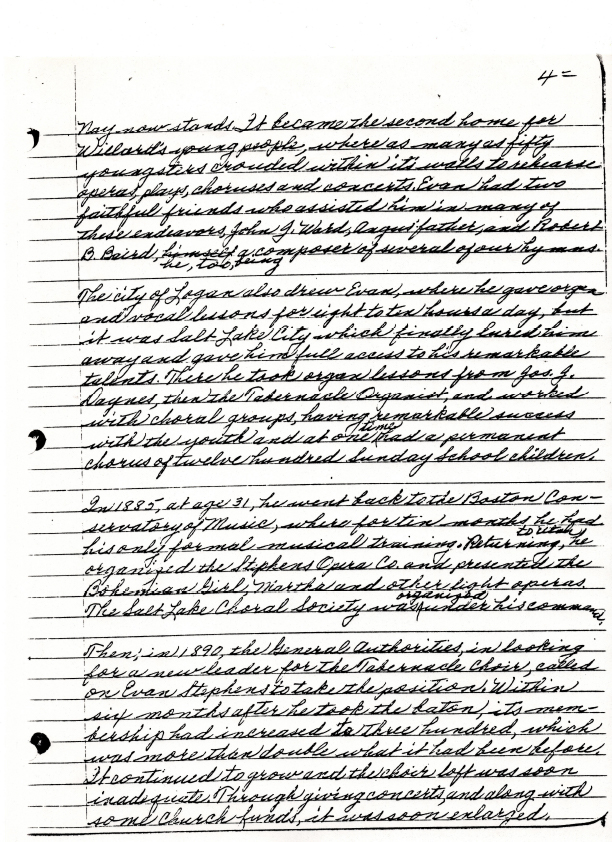 4=
Nay now stands. It became the second home for
Willard's young people, where as many as fifty
youngsters crowded within its walls to rehearse
operas, plays, choruses and concerts. Evan had two
faithful friends who assisted him in many of
these endeavors, John J. Ward, Angus' father, and Robert
B. Baird, himself a composer of several of our hymns.
he, too, being
The city of Logan also drew Evan, where he gave organ
and vocal lessons for eight to ten hours a day, but
it was Salt Lake City which finally lured him
away and gave him full access to his remarkable
talents. There he took organ lessons from Jos. J.
Daynes, then the Tabernacle Organist, and worked
with choral groups, having remarkable success
with the youth and at one time had a permanent
chorus of twelve hundred Sunday School children.
In 1885, at age 31, he went back to the Boston Con-
servatory of Music, where for ten months he had
his only formal musical training. Returning, to Utah he
organized the Stephens Opera Co. and presented the
Bohemian Girl, Martha and other light operas.
The Salt Lake Choral Society was organized under his command.
Then, in 1890, the General Authorities, in looking
for a new leader for the Tabernacle Choir, called
on Evan Stephens to take the position. Within
six months after he took the baton its mem-
bership had increased to three hundred, which
was more than double what it had been before.
It continued to grow and the choir loft was soon
inadequate. Through giving concerts, and along with
some Church funds, it was soon enlarged.